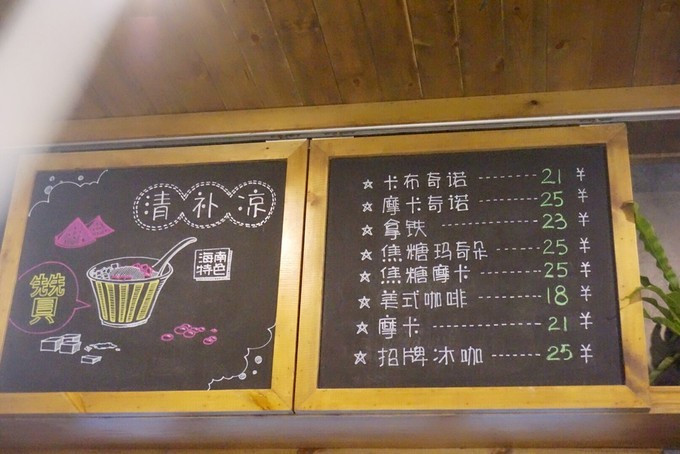 清补凉
海南
特色
赞
☆ 卡布奇诺 ------- 21 ¥
☆ 摩卡奇诺 ------- 25 ¥
☆ 拿铁 ----------- 23 ¥
☆ 焦糖玛奇朵 ------ 25 ¥
☆ 焦糖摩卡 ------- 25 ¥
☆ 美式咖啡 ------- 18 ¥
☆ 摩卡 ----------- 21 ¥
☆ 招牌冰咖 ------- 25 ¥